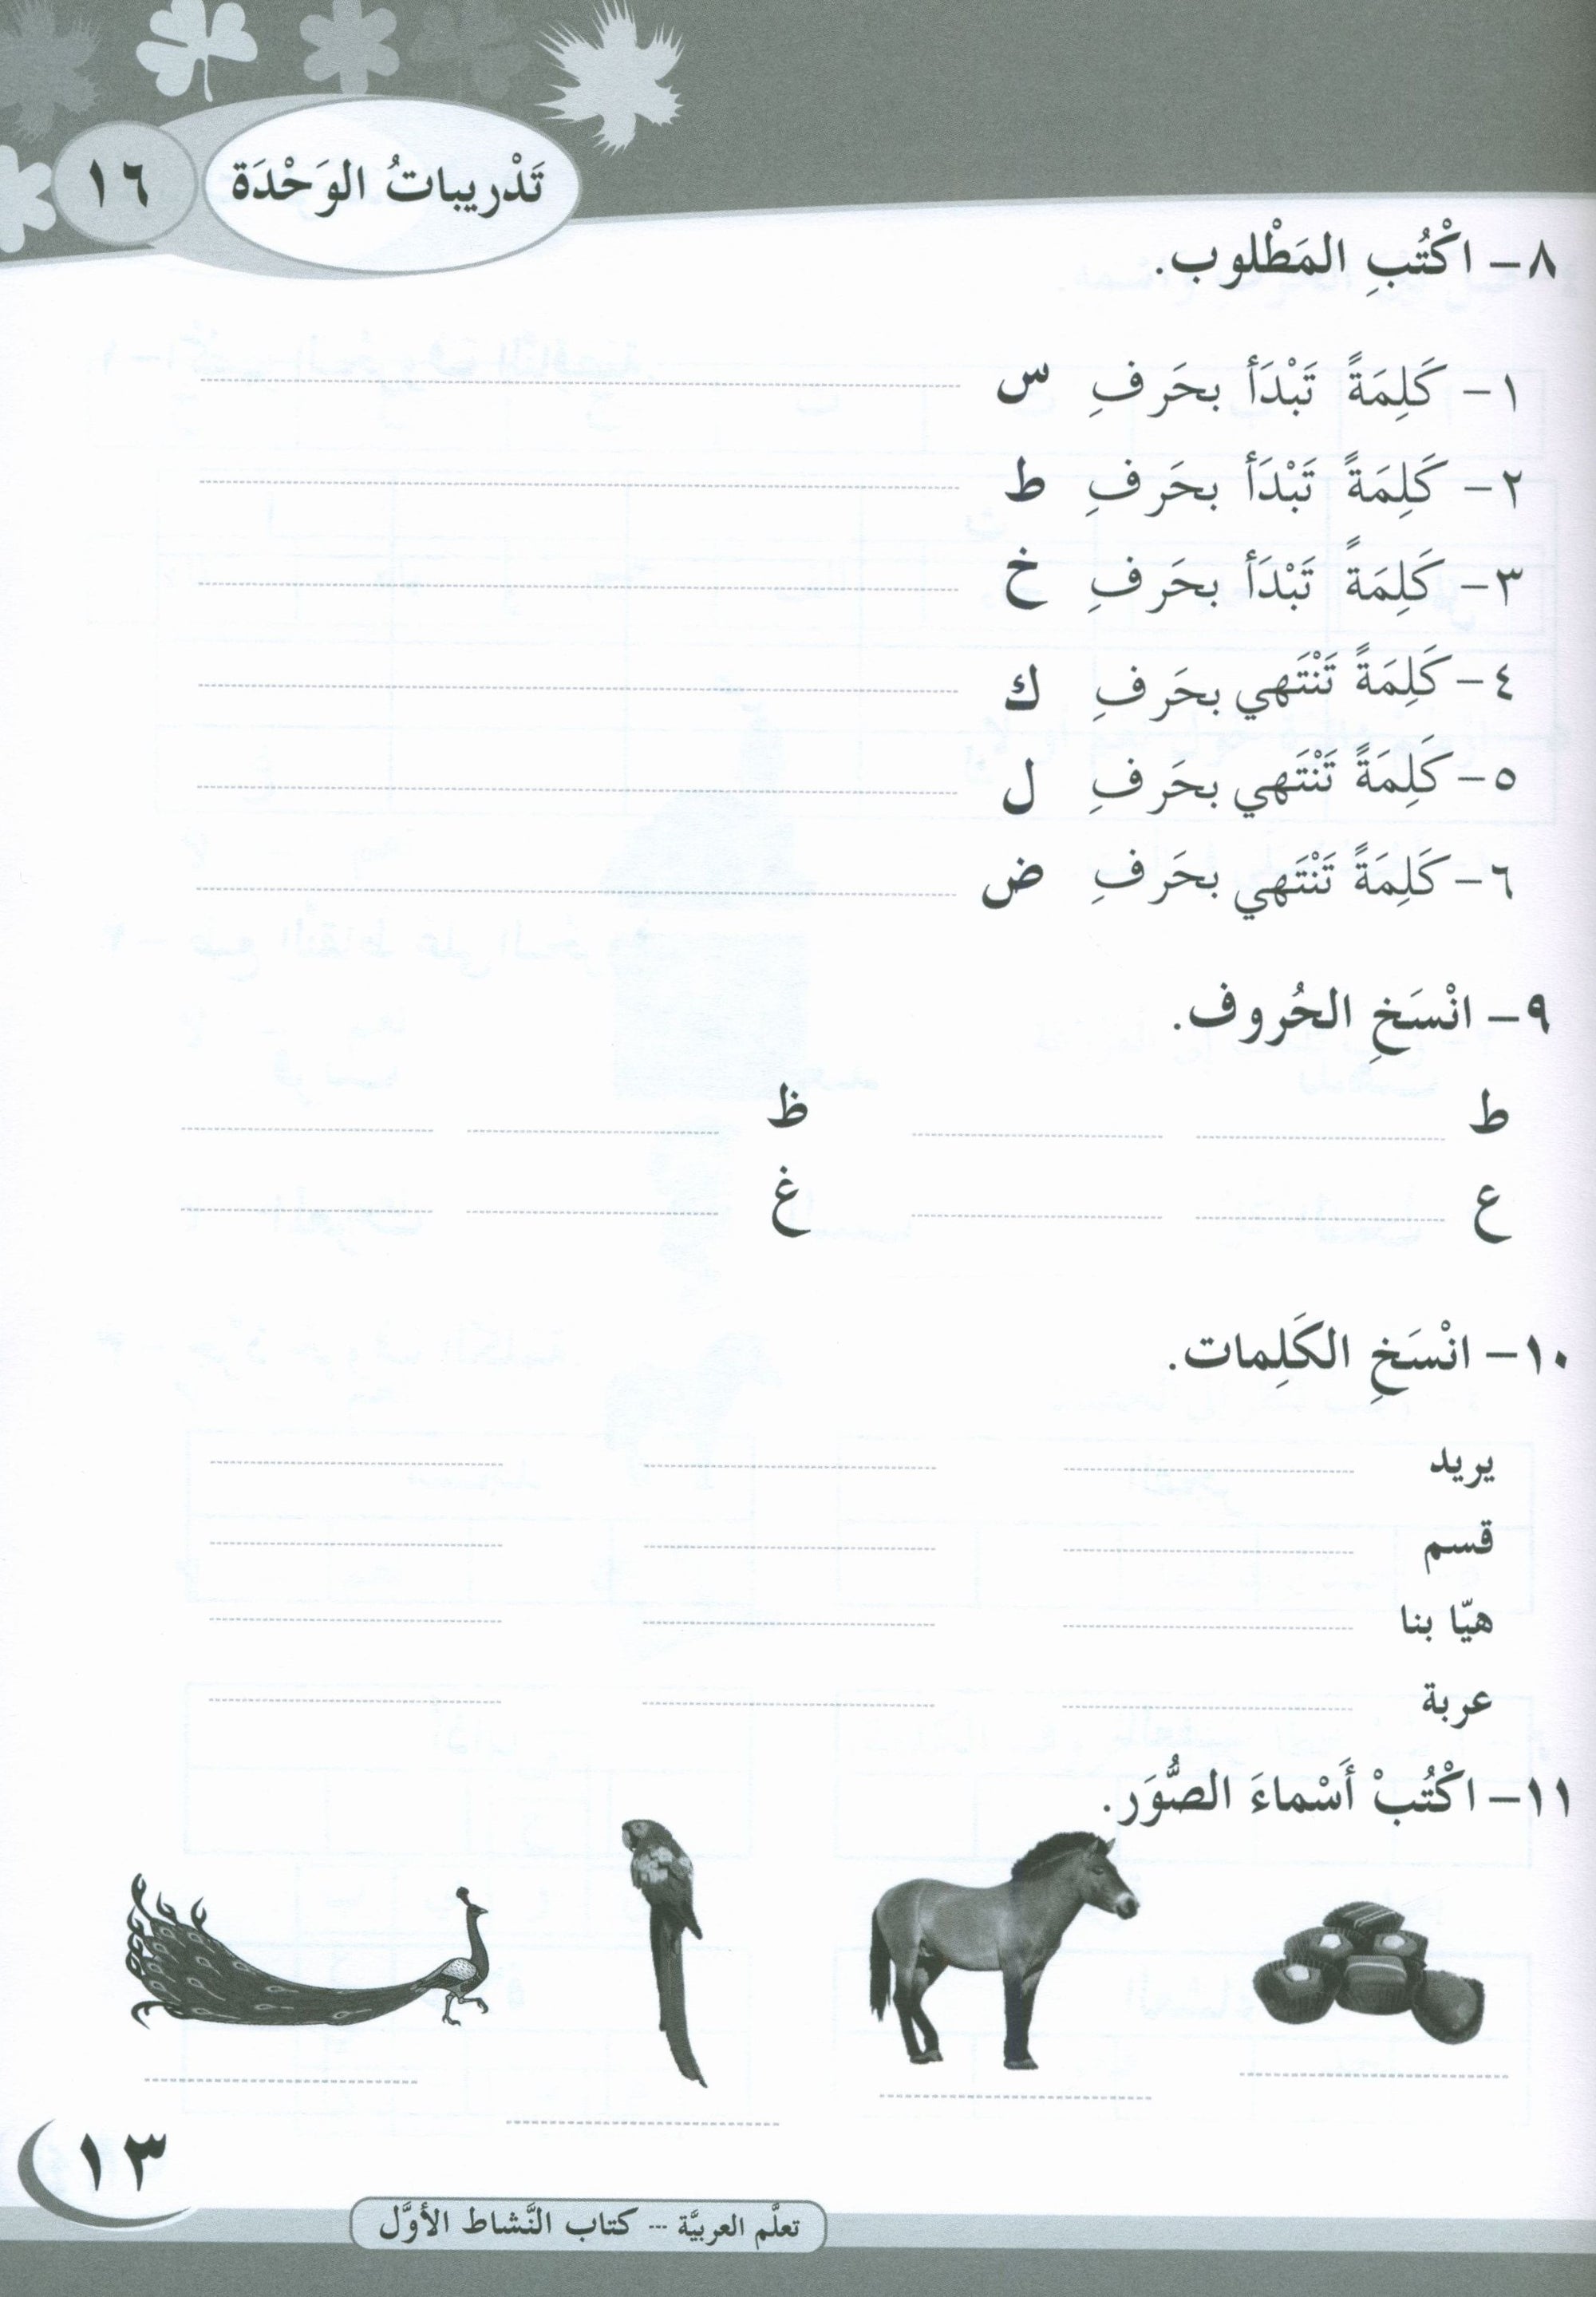 تَدْريباتُ الوَحْدَة ١٦
٨ – اكْتُبِ المَطْلوب.
١ – كَلِمَةً تَبْدَأ بحَرفِ س
٢ – كَلِمَةً تَبْدَأ بحَرفِ ط
٣ – كَلِمَةً تَبْدَأ بحَرفِ خ
٤ – كَلِمَةً تَنْتَهي بحَرفِ ك
٥ – كَلِمَةً تَنْتَهي بحَرفِ ل
٦ – كَلِمَةً تَنْتَهي بحَرفِ ض
٩ – انْسَخِ الحُروف.
ط ظ
ع غ
١٠ – انْسَخِ الكَلِمات.
يريد
قسم
هيّا بنا
عربة
١١ – اكْتُبْ أَسْماءَ الصُّوَر.
١٣
تعلَّم العربيَّة --- كتاب النَّشاط الأوَّل